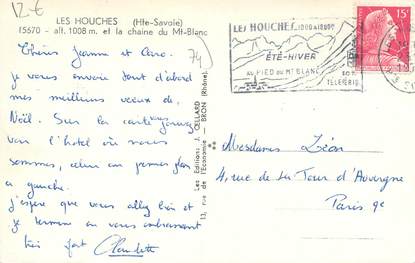 12 €
LES HOUCHES (Hte-Savoie)
15670 - alt. 1008 m. et la chaine du Mt-Blanc
74
Chères Jeanne et Caro.
je vous envoie tout d'abord
mes meilleurs voeux de
Noël. Sur la carte vous
voir l'hotel où nous
sommes, celui au premier plan
a gauche.
j'espère que vous allez bien et
je termine en vous embrassant
très fort Claudette
Les Editions J. CELLARD
13, rue de l'Economie - BRON (Rhône)
LES HOUCHES 1000 A 1800
ÉTÉ-HIVER
AU PIED DU MT BLANC
TÉLÉFÉRIQ
15F
Mesdames Léon
4, rue de la Tour d'Auvergne
Paris 9e